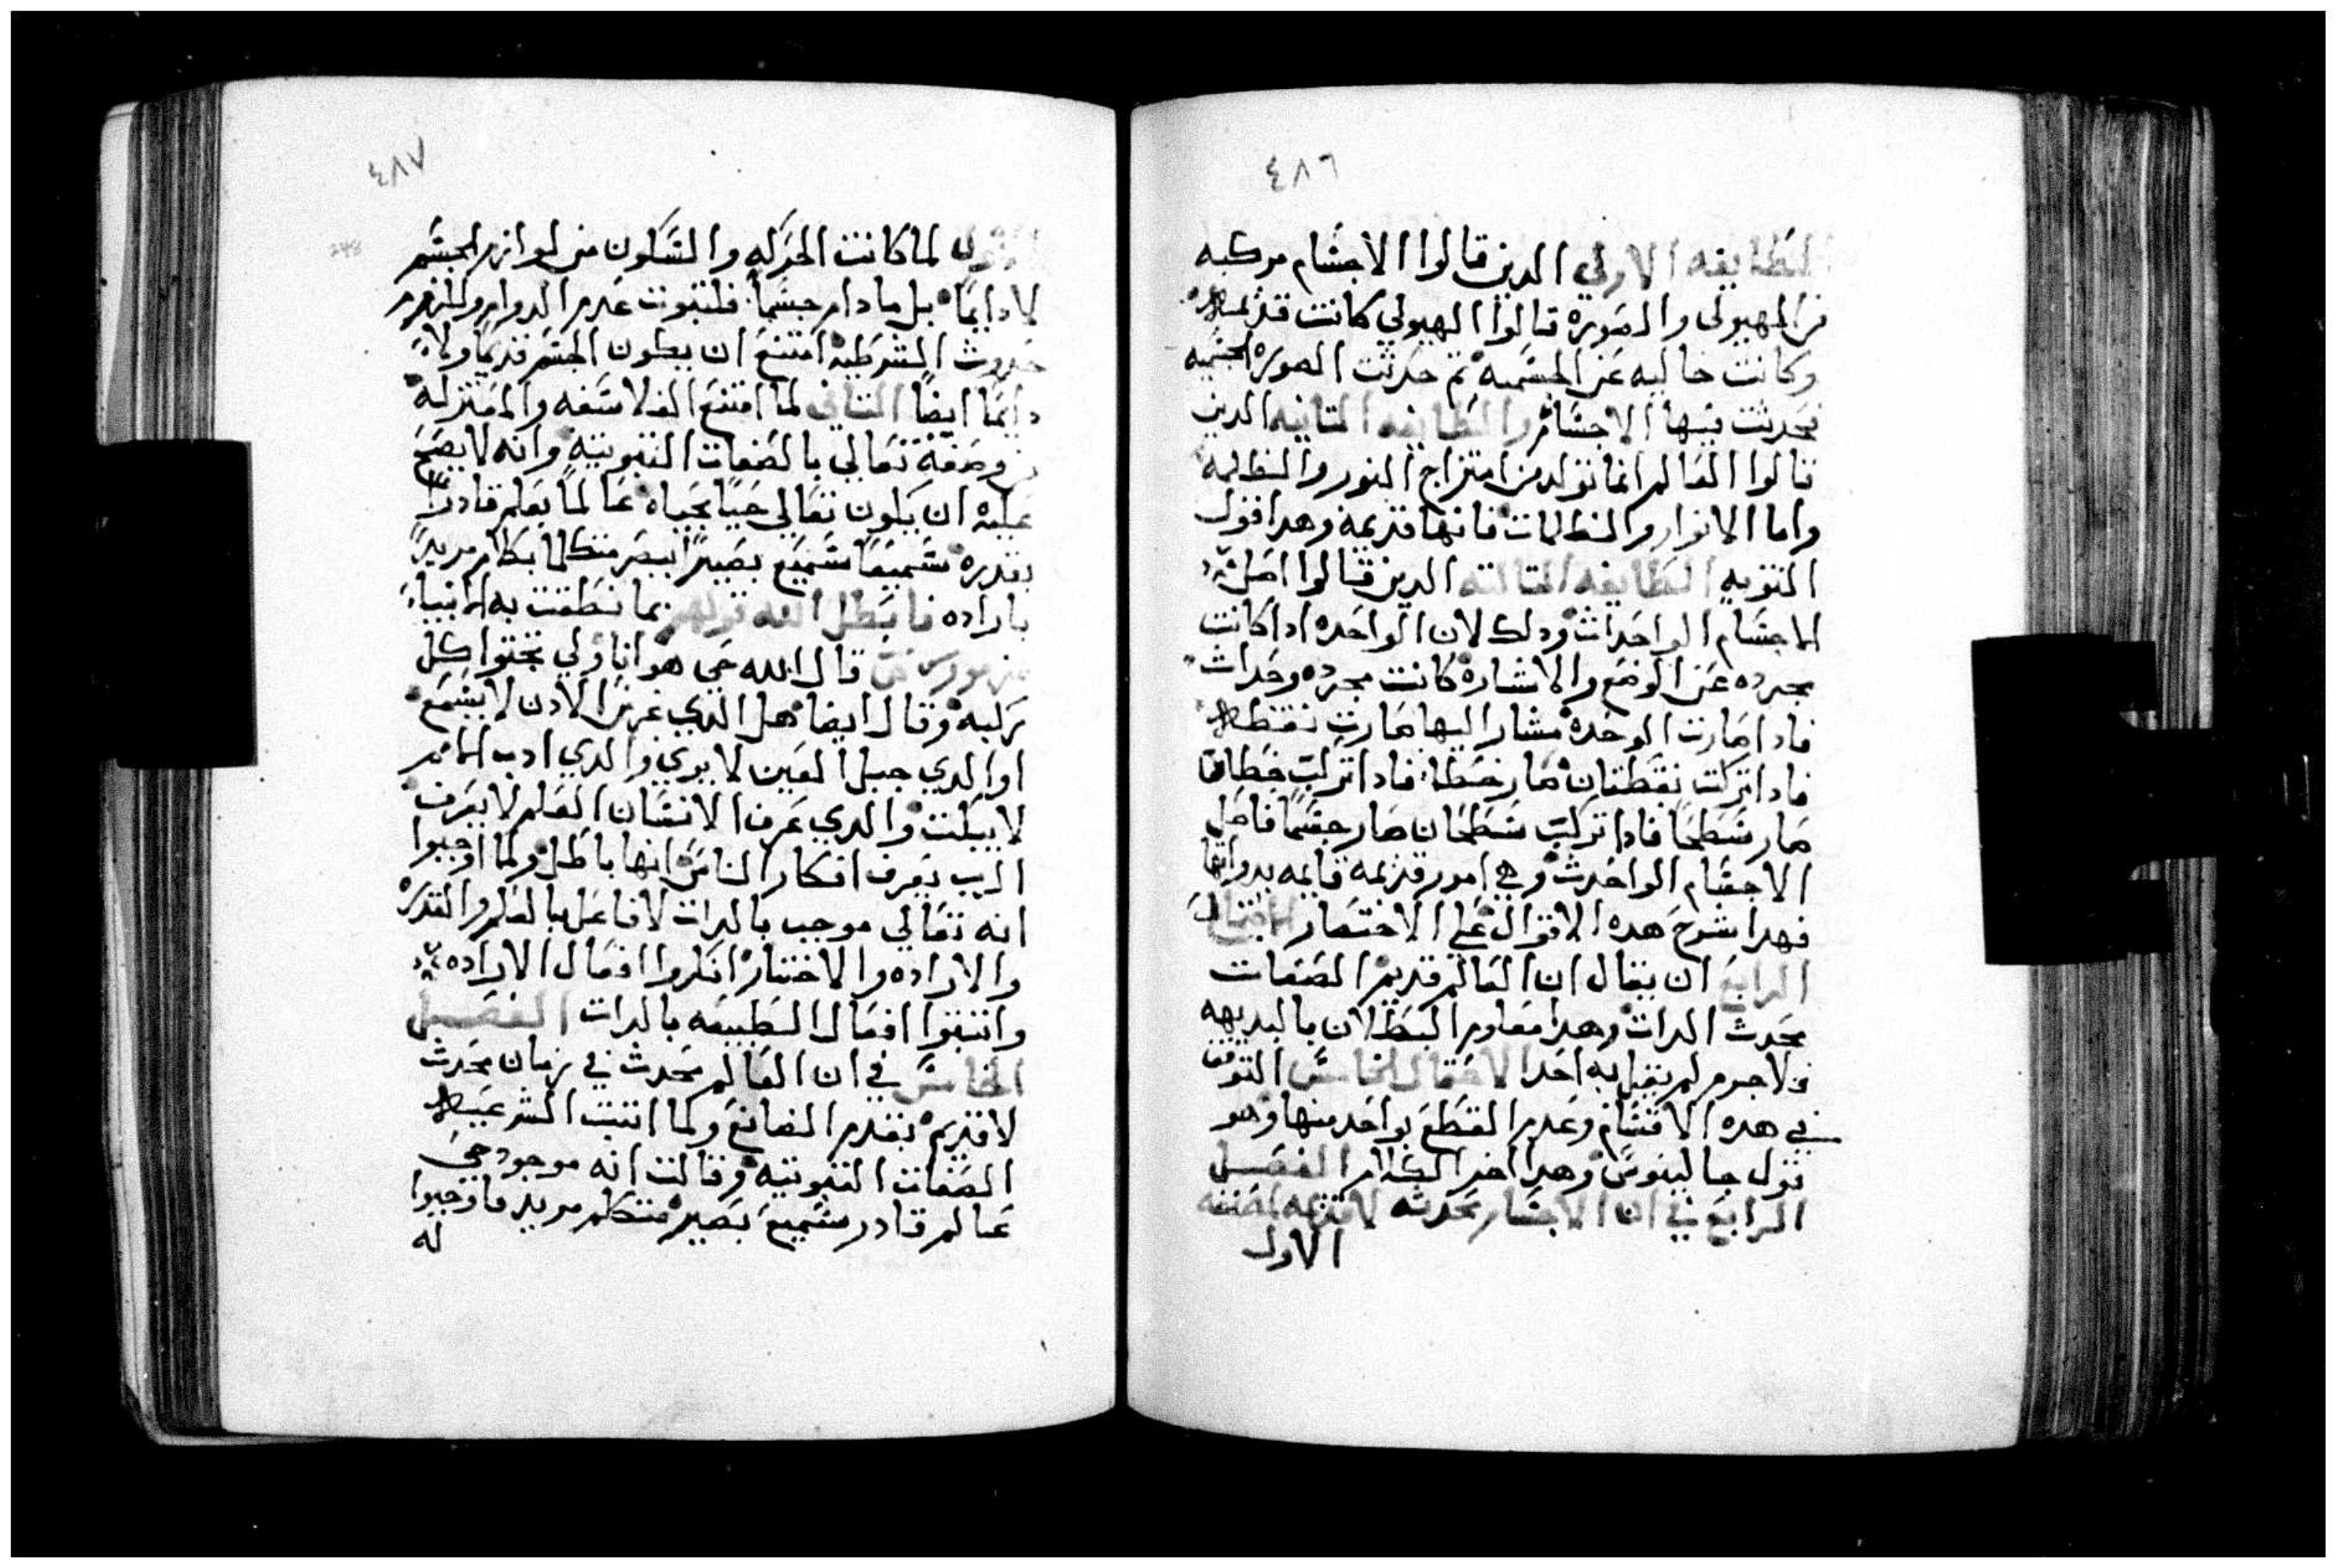 ٤٨٦
الطايفه الاولي الدين قالوا الاجسام مركبه
من الهيولى والصوره قالوا الهيولي كانت قديمه
وكانت خاليه عن الجسميه ثم حدثت الصوره الجسميه
فحدثت فيها الاجسام والطايفه التانيه الدين
قالوا العالم انما تولد من امتزاج النور والظلمه
واما الانوار والظلمات فانها قديمه وهدا قول
التنويه الطايفه التالته الدين قالوا اصل
الاجسام الواحدات ودلك لان الواحده ادا كانت
مجرده عن الوضع والاشاره كانت مجرده وحدات
فادا صارت الوحده مشار اليها صارت نقطه
فادا تركبت نقطتان صار خطا فادا تركبت خطان
صار سطحا فادا تركبت سطحان صار جسما فاصل
الاجسام الواحدت وهي امور قديمه قايمه بدواتها
فهدا شرح هده الاقوال علي الاختصار الاحتمال
الرابع ان يقال ان العالم قديم الصفات
محدث الدات وهدا معلوم البطلان بالبديهه
فلا جرم لم يقبل به احد الاحتمال الخامس التوقف
في هده الاقسام وعدم القطع بواحد منها وهو
قول جالينوس وهدا اخر الكلام الفصل
الرابع في ان الاجسام محدثه لا قديمه
الاول
٤٨٧
لما كانت الحركه والسكون من لوازم الجسم
لا دايما بل مادام جسما فلتبوت عدم الدوام ولزوم
حدوث الشرطيه امتنع ان يكون الجسم قديما ولا
دايما ايضا التاني لما امتنع الفلاسفه والمعتزله
من وصفه تعالي بالصفات التبوتيه وانه لا يصح
عليه ان يكون تعالي حيا بحياه عالما بعلم قادرا
بقدره سميعا سميع بصيرا ببصر متكلما بكلام مريدا
باراده فابطل الله قولهم بما نطقت به الانبياء
قال الله حي هو انا ولي تجتوا كل
ركبه وقال ايضا هل الدي غرس الادن لا يسمع
او الدي جبل العين لا يري والدي ادب الامم
لا يبكت والدي عرف الانسان العلم لا يعرف
الرب يعرف افكار الناس انها باطل ولما اوجبوا
انه تعالي موجب بالدات لا فاعل بالعلم والقدره
والاراده والاختيار انكروا افعال الاراده
واتبتوا افعال الطبيعه بالدات الفصل
الخامس في ان العالم محدث في زمان محدث
لا قديم بقدم الصانع ولما اتبت الشرعيه
الصفات التبوتيه وقالت انه موجود حي
عالم قادر سميع بصير متكلم مريد فاوجبوا
له